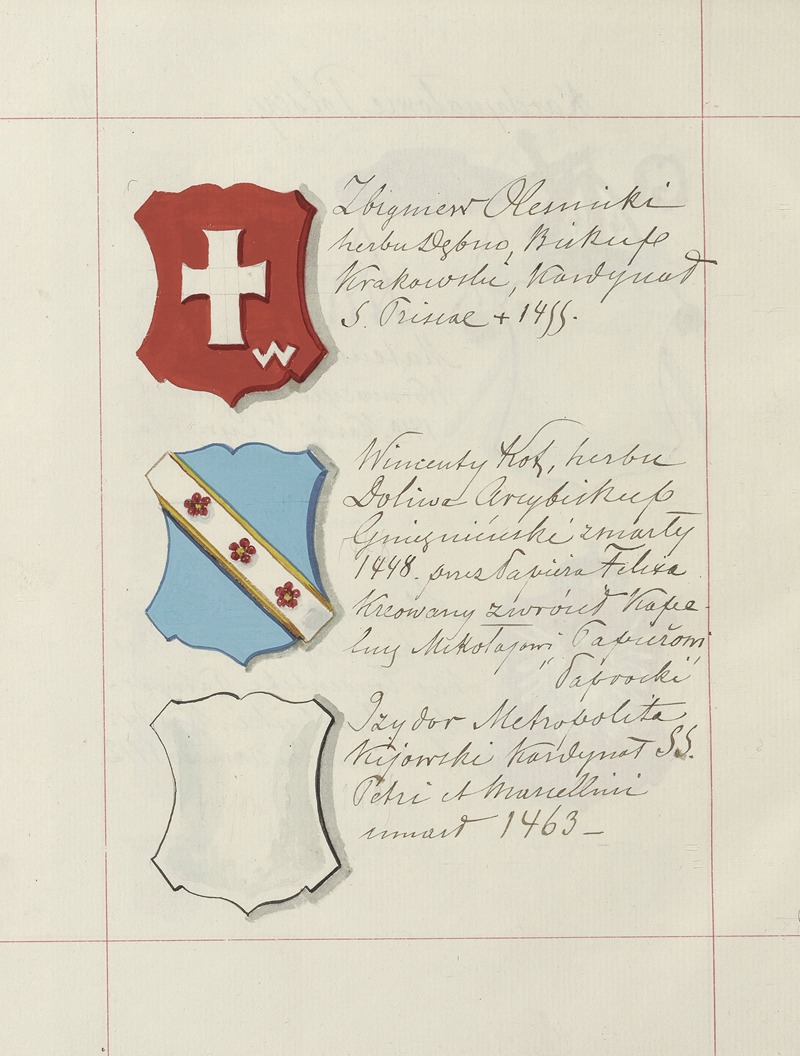 W
Zbigniew Olesnicki
herbu Dębno, Biskup
Krakowski, Kardynał
S. Priscae + 1455.
Wincenty Kot, herbu
Doliwa Arcybiskup
Gnieznieński zmarły
1448. przez Papieża Felixa
Kreowany zwrócił Kape-
lusz Mikołajowi Papieżowi
"Paprocki"
Izydor Metropolita
Kijowski Kardynał SS.
Petri et Marcellini
umarł 1463 –